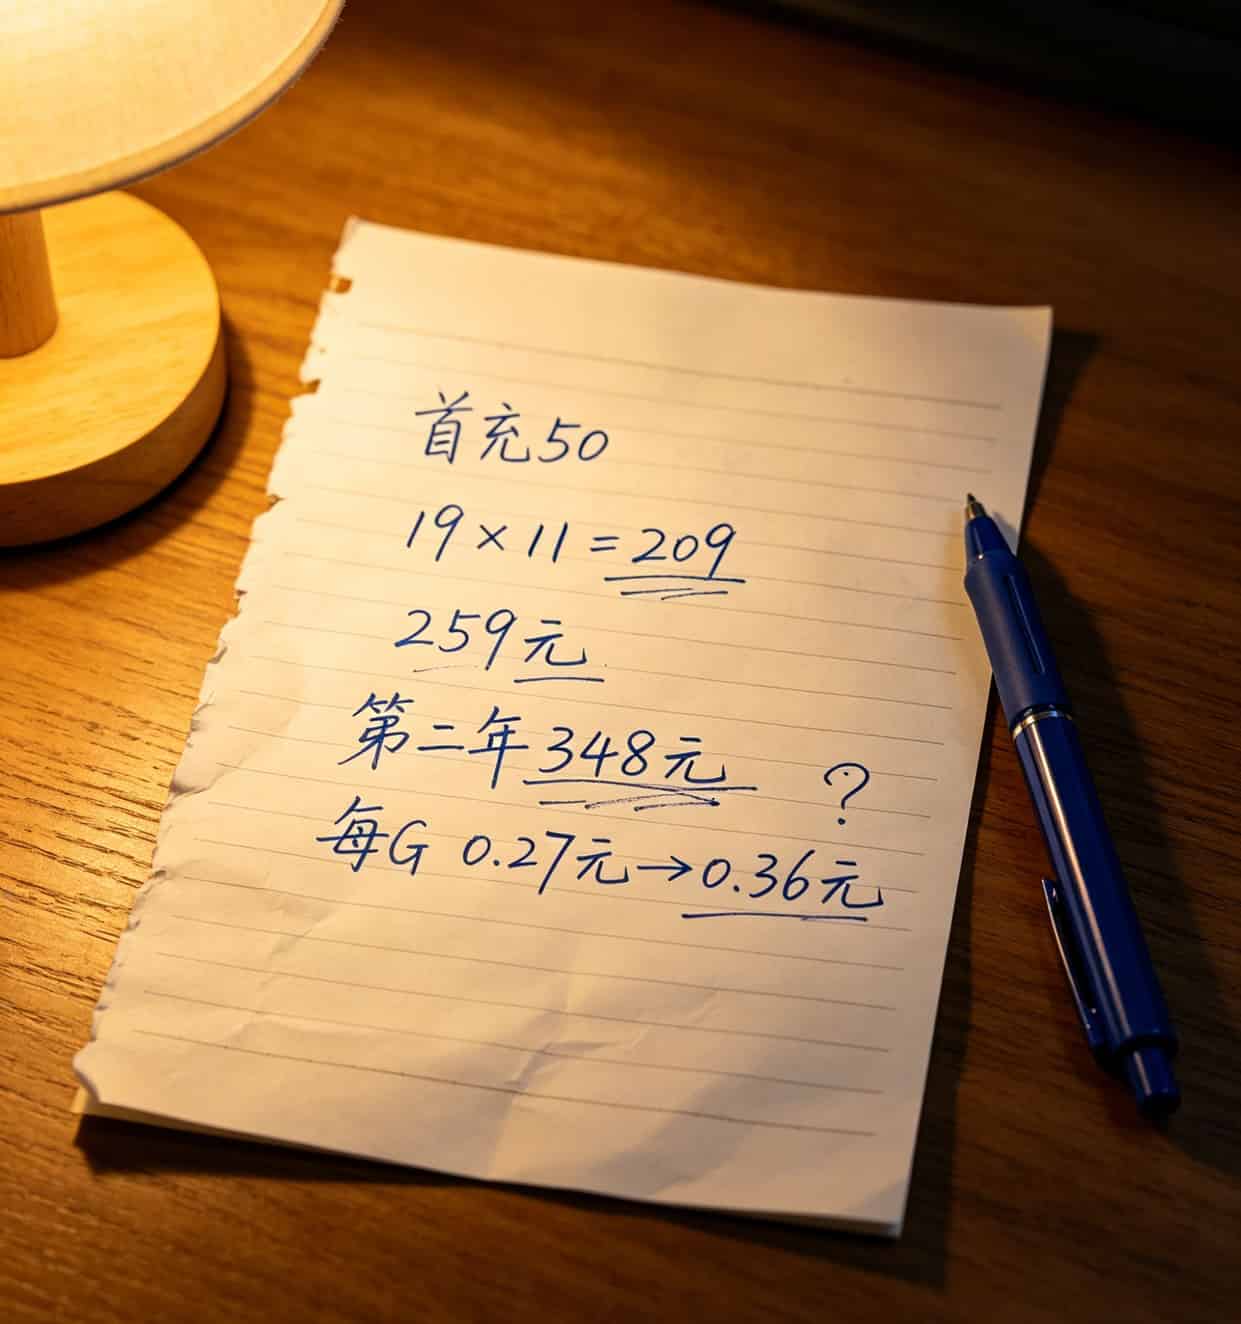 首充50
19×11=209
259元
第二年348元 ?
每G 0.27元→0.36元